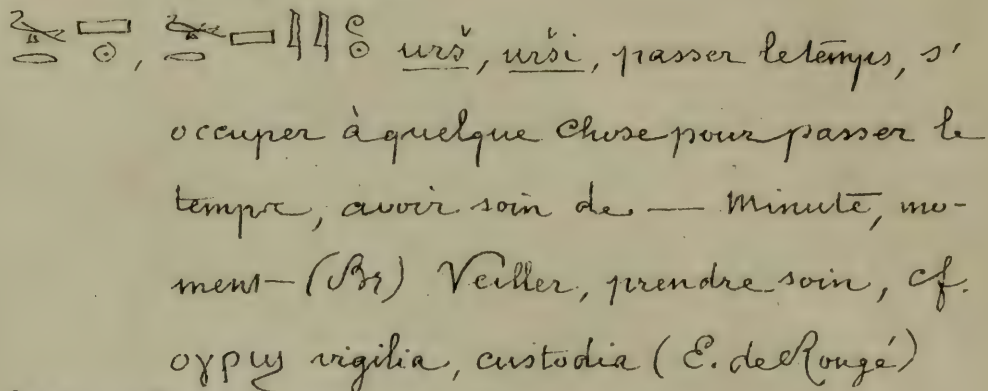 , urš, urši, passer le temps, s'
occuper à quelque chose pour passer le
temps, avoir soin de — Minute, mo-
ment — (Br) Veiller, prendre soin, cf.
ⲟⲩⲣϣ vigilia, custodia (E. de Rougé)